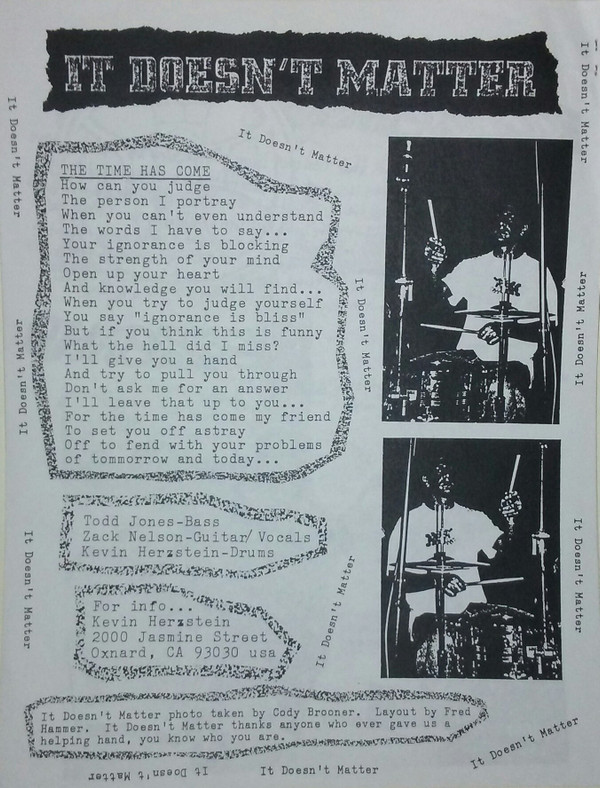 IT DOESN'T MATTER
It Doesn't Matter
It Doesn't Matter
It Doesn't Matter
THE TIME HAS COME
How can you judge
The person I portray
When you can't even understand
The words I have to say...
Your ignorance is blocking
The strength of your mind
Open up your heart
And knowledge you will find...
When you try to judge yourself
You say "ignorance is bliss"
But if you think this is funny
What the hell did I miss?
I'll give you a hand
And try to pull you through
Don't ask me for an answer
I'll leave that up to you...
For the time has come my friend
To set you off astray
Off to fend with your problems
of tommorrow and today...
It Doesn't Matter
It Doesn't Matter
It Doesn't Matter
Todd Jones-Bass
Zack Nelson-Guitar/Vocals
Kevin Herzstein-Drums
It Doesn't Matter
It Doesn't Matter
It Doesn't Matter
For info...
Kevin Herzstein
2000 Jasmine Street
Oxnard, CA 93030 usa
It Doesn't Matter photo taken by Cody Brooner. Layout by Fred
Hammer. It Doesn't Matter thanks anyone who ever gave us a
helping hand, you know who you are.
It Doesn't Matter
It Doesn't Matter
It Doesn't Matter